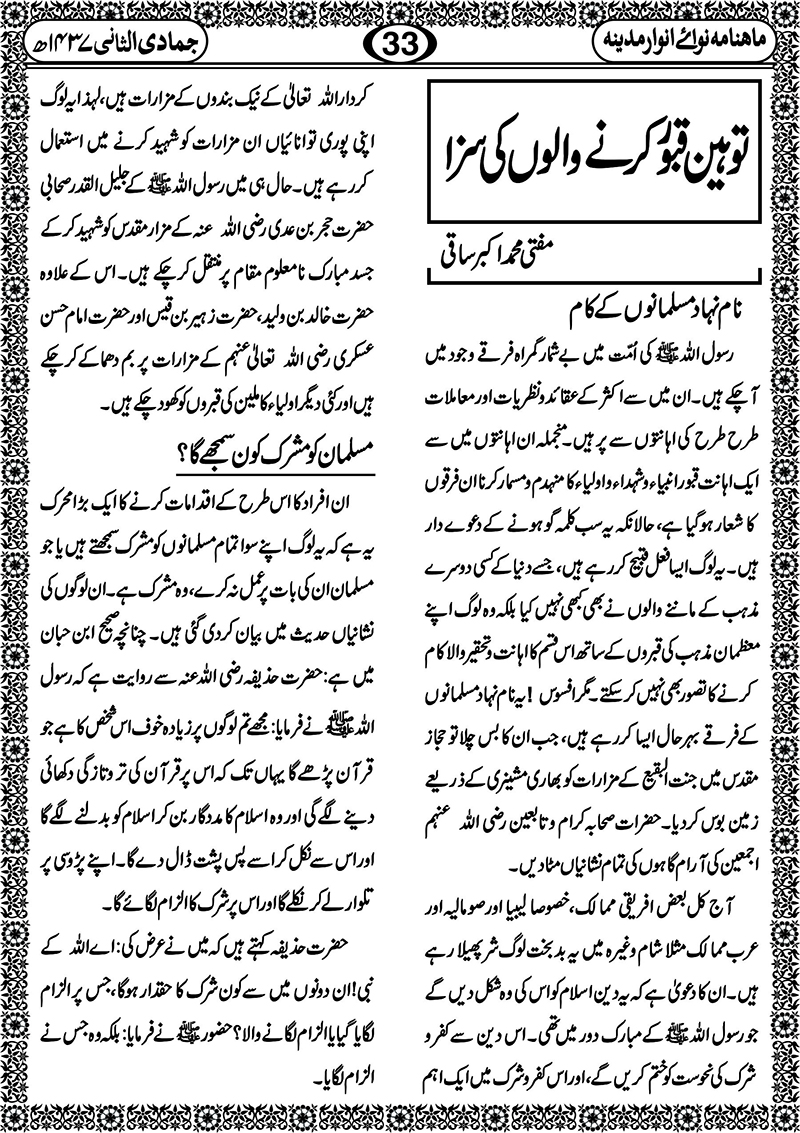 ماہنامہ نوائے انوار مدینہ
33
جمادی الثانی ۱۴۳۷ھ
توہین قبور کرنے والوں کی سزا
مفتی محمد اکبر ساقی
نام نہاد مسلمانوں کے کام
رسول اللہ ﷺ کی اُمّت میں بے شمار گمراہ فرقے وجود میں
آ چکے ہیں۔ ان میں سے اکثر کے عقائد و نظریات اور معاملات
طرح طرح کی اہانتوں سے پر ہیں۔ منجملہ ان اہانتوں میں سے
ایک اہانت قبور انبیاء و شہداء و اولیاء کا منہدم و مسمار کرنا ان فرقوں
کا شعار ہو گیا ہے، حالانکہ یہ سب کلمہ گو ہونے کے دعوے دار
ہیں۔ یہ لوگ ایسا فعل قبیح کر رہے ہیں، جسے دنیا کے کسی دوسرے
مذہب کے ماننے والوں نے بھی کبھی نہیں کیا بلکہ وہ لوگ اپنے
معظمان مذہب کی قبروں کے ساتھ اس قسم کا اہانت و تحقیر والا کام
کرنے کا تصور بھی نہیں کر سکتے۔ مگر افسوس! یہ نام نہاد مسلمانوں
کے فرقے بہرحال ایسا کر رہے ہیں، جب ان کا بس چلا تو حجاز
مقدس میں جنت البقیع کے مزارات کو بھاری مشینری کے ذریعے
زمین بوس کر دیا۔ حضرات صحابہ کرام و تابعین رضی اللہ عنہم
اجمعین کی آرام گاہوں کی تمام نشانیاں مٹا دیں۔
آج کل بعض افریقی ممالک، خصوصا لیبیا اور صومالیہ اور
عرب ممالک مثلا شام وغیرہ میں یہ بد بخت لوگ شر پھیلا رہے
ہیں۔ ان کا دعویٰ ہے کہ یہ دین اسلام کو اس کی وہ شکل دیں گے
جو رسول اللہ ﷺ کے مبارک دور میں تھی۔ اس دین سے کفر و
شرک کی نحوست کو ختم کریں گے، اور اس کفر و شرک میں ایک اہم
کردار اللہ تعالیٰ کے نیک بندوں کے مزارات ہیں، لہذا یہ لوگ
اپنی پوری توانائیاں ان مزارات کو شہید کرنے میں استعمال
کر رہے ہیں۔ حال ہی میں رسول اللہ ﷺ کے جلیل القدر صحابی
حضرت حجر بن عدی رضی اللہ عنہ کے مزار مقدس کو شہید کر کے
جسد مبارک نا معلوم مقام پر منتقل کر چکے ہیں۔ اس کے علاوہ
حضرت خالد بن ولید، حضرت زہیر بن قیس اور حضرت امام حسن
عسکری رضی اللہ تعالیٰ عنہم کے مزارات پر بم دھماکے کر چکے
ہیں اور کئی دیگر اولیاء کاملین کی قبروں کو کھود چکے ہیں۔
مسلمان کو مشرک کون سمجھے گا؟
ان افراد کا اس طرح کے اقدامات کرنے کا ایک بڑا محرک
یہ ہے کہ یہ لوگ اپنے سوا تمام مسلمانوں کو مشرک سمجھتے ہیں یا جو
مسلمان ان کی بات پر عمل نہ کرے، وہ مشرک ہے۔ ان لوگوں کی
نشانیاں حدیث میں بیان کر دی گئی ہیں۔ چنانچہ صحیح ابن حبان
میں ہے: حضرت حذیفہ رضی اللہ عنہ سے روایت ہے کہ رسول
اللہ ﷺ نے فرمایا: مجھے تم لوگوں پر زیادہ خوف اس شخص کا ہے جو
قرآن پڑھے گا یہاں تک کہ اس پر قرآن کی تر و تازگی دکھائی
دینے لگے گی اور وہ اسلام کا مددگار بن کر اسلام کو بدلنے لگے گا
اور اس سے نکل کر اسے پس پشت ڈال دے گا۔ اپنے پڑوسی پر
تلوار لے کر نکلے گا اور اس پر شرک کا الزام لگائے گا۔
حضرت حذیفہ کہتے ہیں کہ میں نے عرض کی: اے اللہ کے
نبی! ان دونوں میں سے کون شرک کا حقدار ہو گا، جس پر الزام
لگایا گیا یا الزام لگانے والا؟ حضور ﷺ نے فرمایا: بلکہ وہ جس نے
الزام لگایا۔